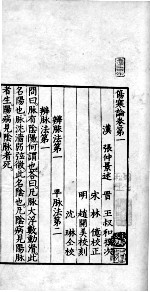 傷寒論卷第一
漢　張仲景述　晉　王叔和撰次
宋　林億校正
明　趙開美校刻
沈琳仝校
辨脉法第一　平脉法第二
辨脉法第一
問曰脉有陰陽何謂也答曰凡脉大浮數動滑此
名陽也脉沈濇弱弦微此名陰也凡陰病見陽脉
者生陽病見陰脉者死